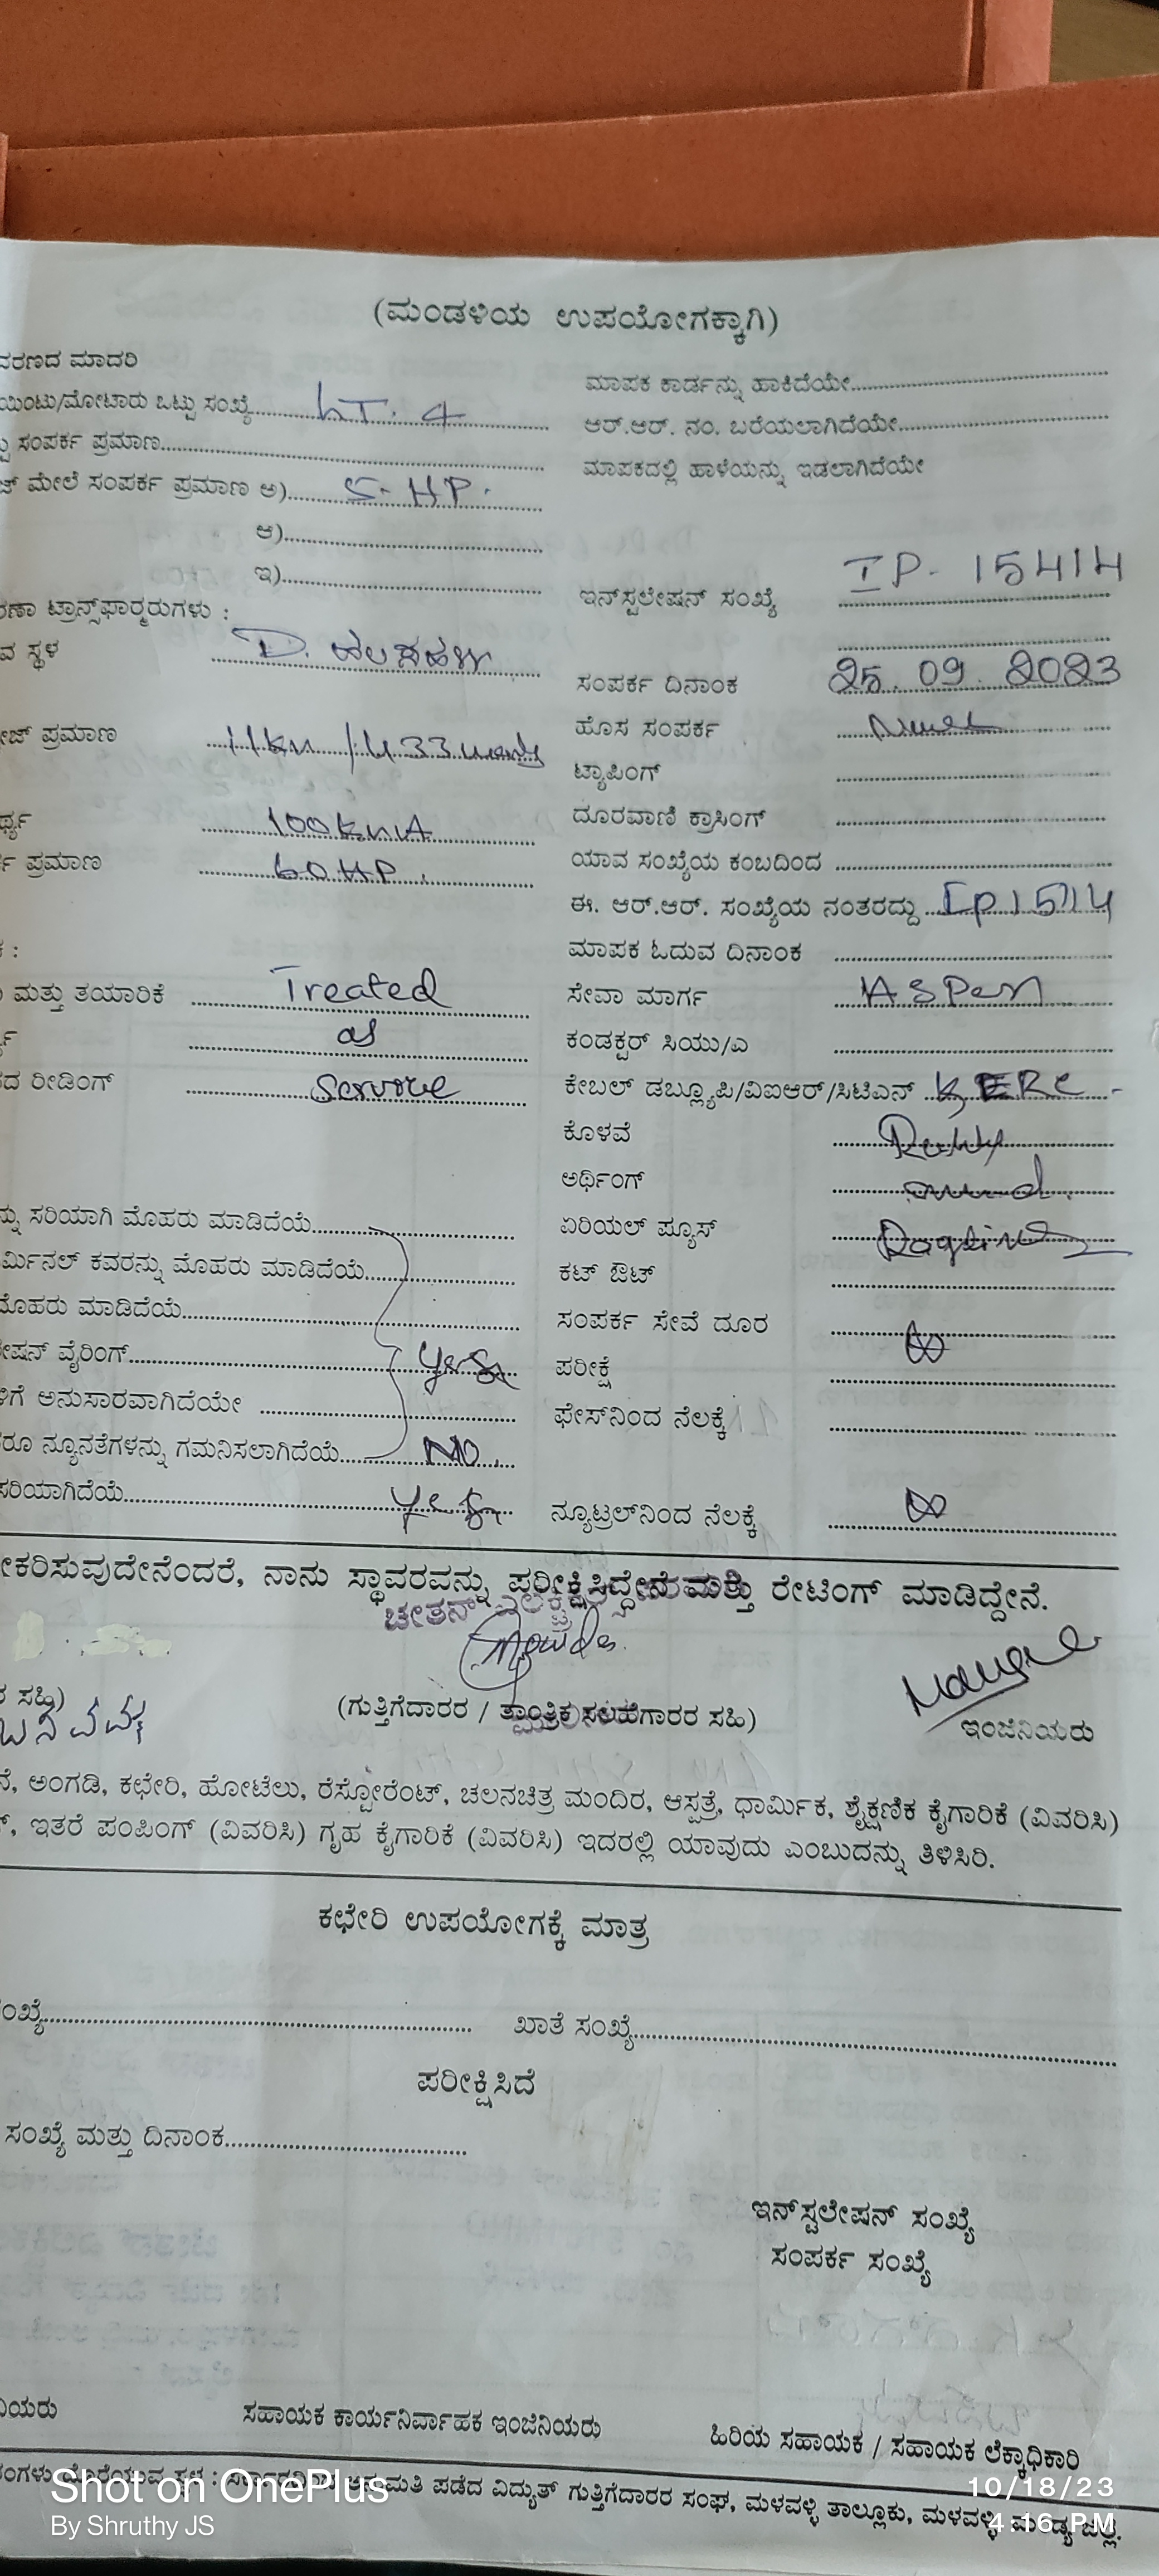 (ಮಂಡಳಿಯ ಉಪಯೋಗಕ್ಕಾಗಿ)
ವರಣದ ಮಾದರಿ
ಯಿಂಟು/ಮೋಟಾರು ಒಟ್ಟು ಸಂಖ್ಯೆ LT. 4
ಸಂಪರ್ಕ ಪ್ರಮಾಣ
ಜ್ ಮೇಲೆ ಸಂಪರ್ಕ ಪ್ರಮಾಣ ಅ) 5-HP.
ಆ)
ಇ)
ರಣಾ ಟ್ರಾನ್ಸ್‌ಫಾರ್ಮರುಗಳು :
ವ ಸ್ಥಳ D.
ಜ್ ಪ್ರಮಾಣ 11KV / 433
ರ್ಥ್ಯ 100 KVA
ಪ್ರಮಾಣ 60 HP.
ಮತ್ತು ತಯಾರಿಕೆ Treated
as
ದ ರೀಡಿಂಗ್ Service
ನ್ನು ಸರಿಯಾಗಿ ಮೊಹರು ಮಾಡಿದೆಯೆ
ರ್ಮಿನಲ್ ಕವರನ್ನು ಮೊಹರು ಮಾಡಿದೆಯೆ
ಮೊಹರು ಮಾಡಿದೆಯೆ
ಷನ್ ವೈರಿಂಗ್ Yes
ಗೆ ಅನುಸಾರವಾಗಿದೆಯೇ
ರೂ ನ್ಯೂನತೆಗಳನ್ನು ಗಮನಿಸಲಾಗಿದೆಯೆ NO
ಸರಿಯಾಗಿದೆಯೆ Yes
ಮಾಪಕ ಕಾರ್ಡನ್ನು ಹಾಕಿದೆಯೇ
ಆರ್.ಆರ್. ನಂ. ಬರೆಯಲಾಗಿದೆಯೇ
ಮಾಪಕದಲ್ಲಿ ಹಾಳೆಯನ್ನು ಇಡಲಾಗಿದೆಯೇ
ಇನ್‌ಸ್ಟಲೇಷನ್ ಸಂಖ್ಯೆ IP- 15414
ಸಂಪರ್ಕ ದಿನಾಂಕ 25.09.2023
ಹೊಸ ಸಂಪರ್ಕ
ಟ್ಯಾಪಿಂಗ್
ದೂರವಾಣಿ ಕ್ರಾಸಿಂಗ್
ಯಾವ ಸಂಖ್ಯೆಯ ಕಂಬದಿಂದ
ಈ. ಆರ್.ಆರ್. ಸಂಖ್ಯೆಯ ನಂತರದ್ದು
ಮಾಪಕ ಓದುವ ದಿನಾಂಕ
ಸೇವಾ ಮಾರ್ಗ AS Per
ಕಂಡಕ್ಟರ್ ಸಿಯು/ಎ
ಕೇಬಲ್ ಡಬ್ಲ್ಯೂಪಿ/ವಿಐಆರ್/ಸಿಟಿಎಸ್ KERC
ಕೊಳವೆ
ಅರ್ಥಿಂಗ್
ಏರಿಯಲ್ ಪ್ಯೂಸ್
ಕಟ್ ಔಟ್
ಸಂಪರ್ಕ ಸೇವೆ ದೂರ
ಪರೀಕ್ಷೆ
ಫೇಸ್‌ನಿಂದ ನೆಲಕ್ಕೆ
ನ್ಯೂಟ್ರಲ್‌ನಿಂದ ನೆಲಕ್ಕೆ
ಕರಿಸುವುದೇನೆಂದರೆ, ನಾನು ಸ್ಥಾವರವನ್ನು ಪರೀಕ್ಷಿಸಿದ್ದೇನೆ ಮತ್ತು ರೇಟಿಂಗ್ ಮಾಡಿದ್ದೇನೆ.
ಚೇತನ್
ಸಹಿ)
(ಗುತ್ತಿಗೆದಾರರ / ತಾಂತ್ರಿಕ ಸಲಹೆಗಾರರ ಸಹಿ)
ಇಂಜಿನಿಯರು
ಅಂಗಡಿ, ಕಛೇರಿ, ಹೋಟೆಲು, ರೆಸ್ಟೋರೆಂಟ್, ಚಲನಚಿತ್ರ ಮಂದಿರ, ಆಸ್ಪತ್ರೆ, ಧಾರ್ಮಿಕ, ಶೈಕ್ಷಣಿಕ ಕೈಗಾರಿಕೆ (ವಿವರಿಸಿ)
ಇತರೆ ಪಂಪಿಂಗ್ (ವಿವರಿಸಿ) ಗೃಹ ಕೈಗಾರಿಕೆ (ವಿವರಿಸಿ) ಇದರಲ್ಲಿ ಯಾವುದು ಎಂಬುದನ್ನು ತಿಳಿಸಿರಿ.
ಕಛೇರಿ ಉಪಯೋಗಕ್ಕೆ ಮಾತ್ರ
ಂಖ್ಯೆ ಖಾತೆ ಸಂಖ್ಯೆ
ಪರೀಕ್ಷಿಸಿದೆ
ಸಂಖ್ಯೆ ಮತ್ತು ದಿನಾಂಕ
ಇನ್‌ಸ್ಟಲೇಷನ್ ಸಂಖ್ಯೆ
ಸಂಪರ್ಕ ಸಂಖ್ಯೆ
ಯರು ಸಹಾಯಕ ಕಾರ್ಯನಿರ್ವಾಹಕ ಇಂಜಿನಿಯರು ಹಿರಿಯ ಸಹಾಯಕ / ಸಹಾಯಕ ಲೆಕ್ಕಾಧಿಕಾರಿ
ಪಡೆದ ವಿದ್ಯುತ್ ಗುತ್ತಿಗೆದಾರರ ಸಂಘ, ಮಳವಳ್ಳಿ ತಾಲ್ಲೂಕು, ಮಳವಳ್ಳಿ. ಮಂಡ್ಯ ಜಿಲ್ಲೆ.
Shot on OnePlus
By Shruthy JS
10/18/23
4:16 PM